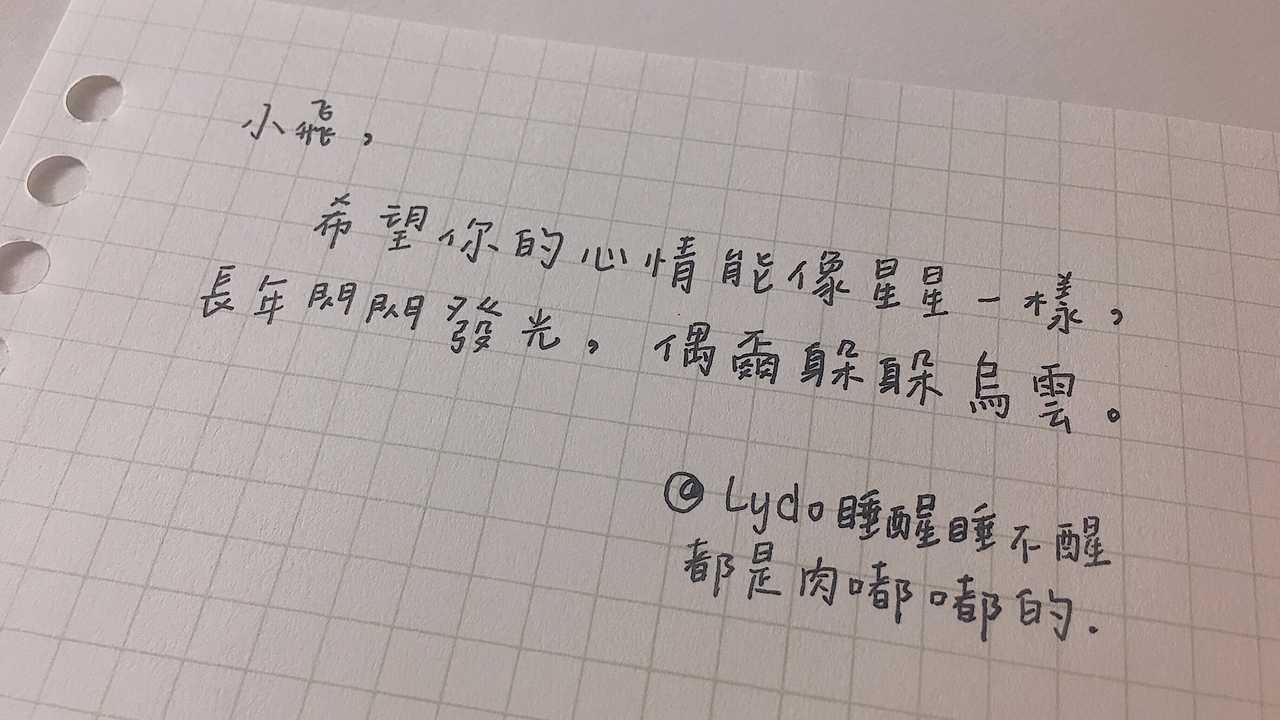 小飛，
希望你的心情能像星星一樣，
長年閃閃發光，偶爾躲躲烏雲。
@Lydo睡醒睡不醒
都是肉嘟嘟的.